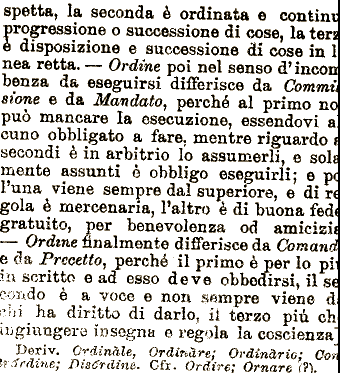 spetta, la seconda è ordinata e continu
progressione o successione di cose, la terz
è disposizione e successione di cose in l
nea retta. — Ordine poi nel senso d'incom
benza da eseguirsi differisce da Commis
sione e da Mandato, perché al primo no
può mancare la esecuzione, essendovi al
cuno obbligato a fare, mentre riguardo a
secondi è in arbitrio lo assumerli, e sola
mente assunti è obbligo eseguirli; e po
l'una viene sempre dal superiore, e di re
gola è mercenaria, l'altro è di buona fede
gratuito, per benevolenza od amicizia
— Ordine finalmente differisce da Comand
e da Precetto, perché il primo è per lo più
in scritto e ad esso deve obbedirsi, il se
condo è a voce e non sempre viene d
chi ha diritto di darlo, il terzo più ch
ingiungere insegna e regola la coscienza
Deriv. Ordinàle, Ordinàre; Ordinàrio; Con
trórdine; Disórdine. Cfr. Ordire; Ornare (?).